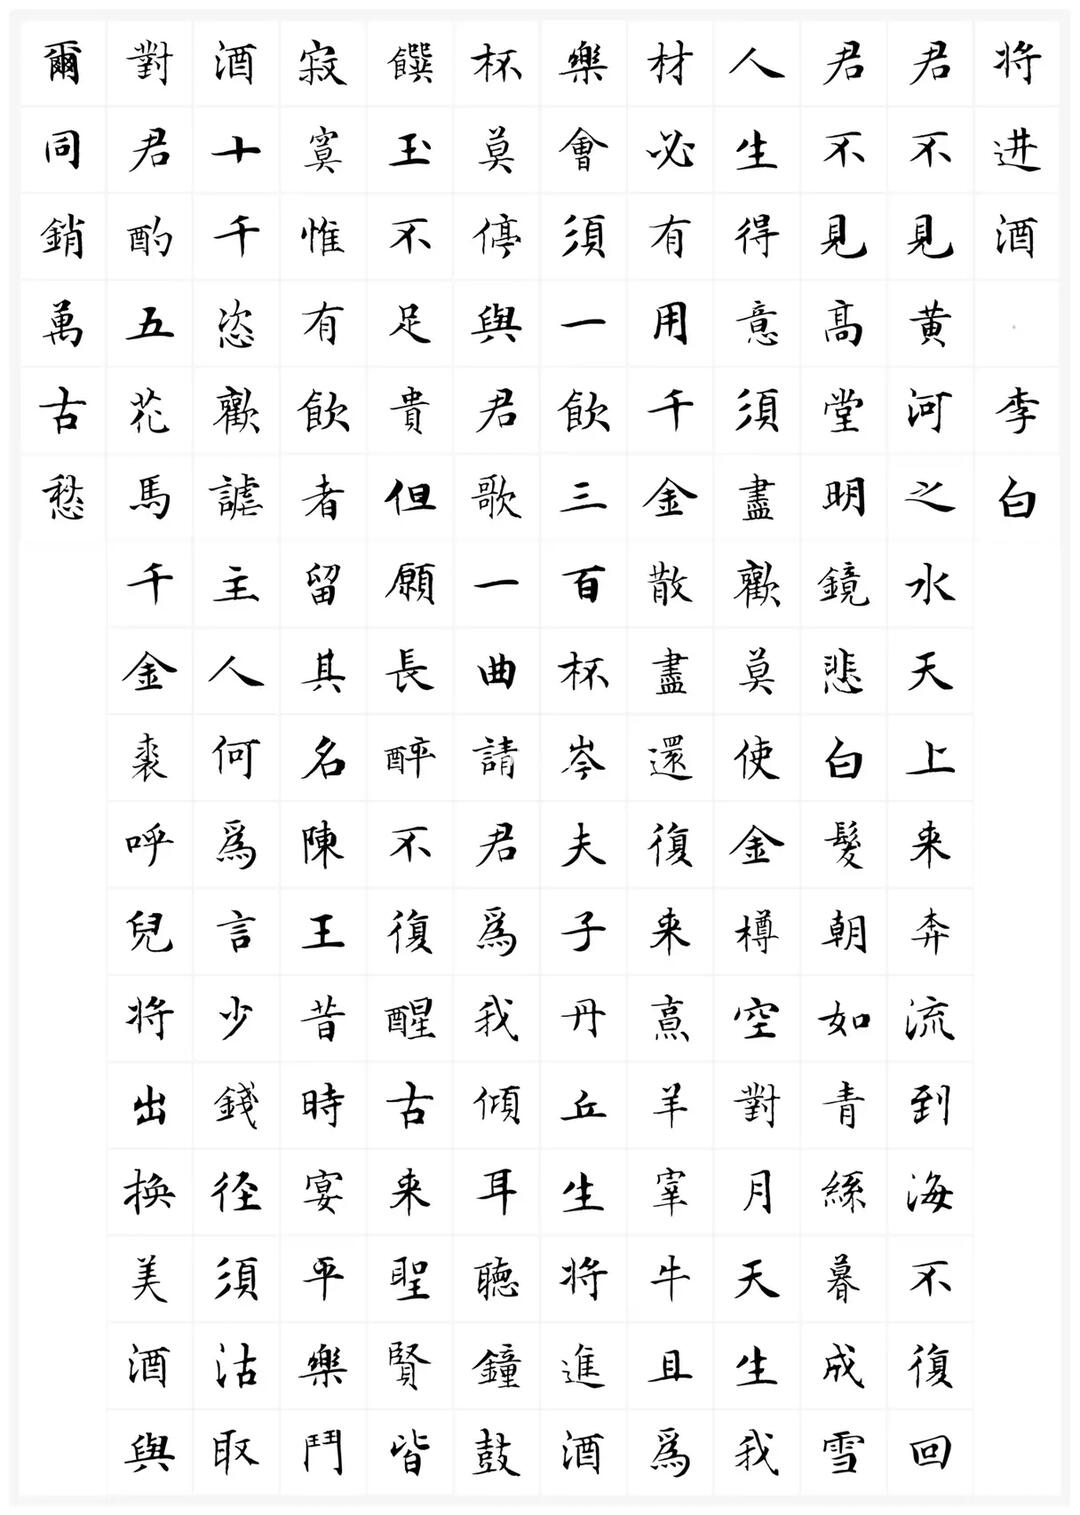 将进酒·李白
君不見黄河之水天上来奔流到海不復回
君不見高堂明鏡悲白髮朝如青絲暮成雪
人生得意須盡歡莫使金樽空對月天生我
材必有用千金散盡還復来烹羊宰牛且爲
樂會須一飲三百杯岑夫子丹丘生将進酒
杯莫停與君歌一曲請君爲我傾耳聽鐘鼓
饌玉不足貴但願長醉不復醒古来聖賢皆
寂寞惟有飲者留其名陳王昔時宴平樂鬥
酒十千恣歡謔主人何爲言少錢径須沽取
對君酌五花馬千金裘呼兒将出換美酒與
爾同銷萬古愁